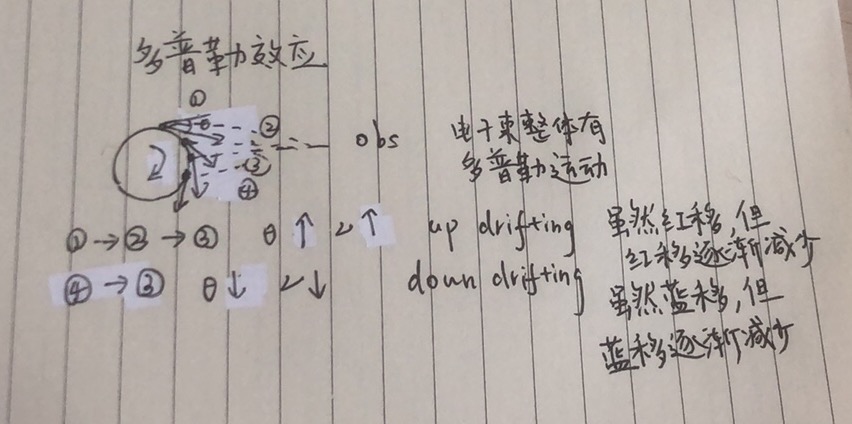 多普勒效应
①
θ
②
③
④
obs
电子束整体有
多普勒运动
①→②→③ θ↑ ν↑ up drifting 虽然红移,但
红移逐渐减少
④→③ θ↓ ν↓ down drifting 虽然蓝移,但
蓝移逐渐减少